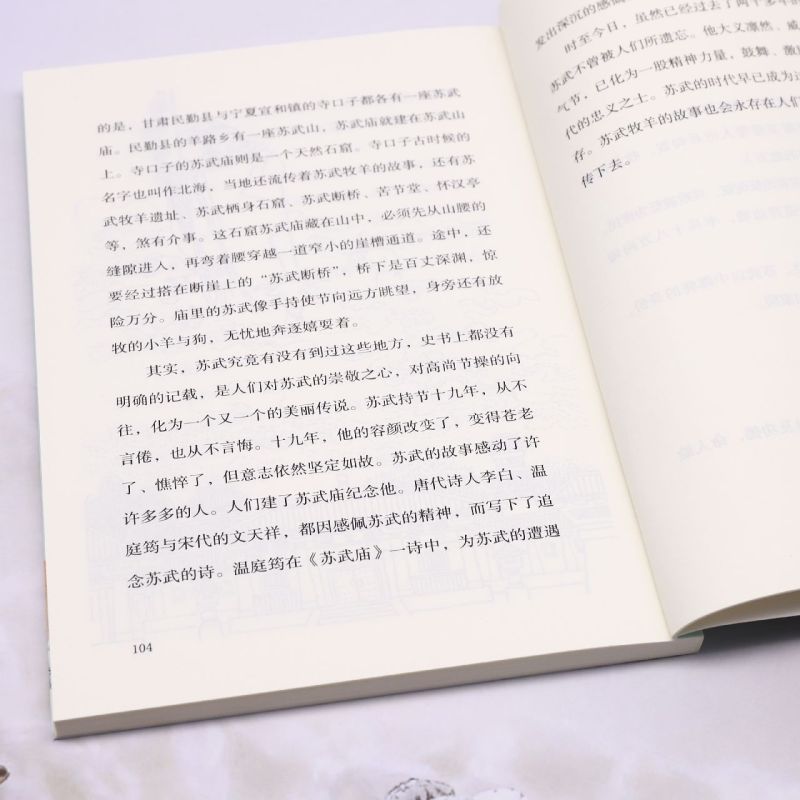 的是，甘肃民勤县与宁夏宣和镇的寺口子都各有一座苏武
庙。民勤县的羊路乡有一座苏武山，苏武庙就建在苏武山
上。寺口子的苏武庙则是一个天然石窟。寺口子古时候的
名字也叫作北海，当地还流传着苏武牧羊的故事，还有苏
武牧羊遗址、苏武栖身石窟、苏武断桥、苦节堂、怀汉亭
等，煞有介事。这石窟苏武庙藏在山中，必须先从山腰的
缝隙进入，再弯着腰穿越一道窄小的崖槽通道。途中，还
要经过搭在断崖上的“苏武断桥”，桥下是百丈深渊，惊
险万分。庙里的苏武像手持使节向远方眺望，身旁还有放
牧的小羊与狗，无忧地奔逐嬉耍着。
其实，苏武究竟有没有到过这些地方，史书上都没有
明确的记载，是人们对苏武的崇敬之心，对高尚节操的向
往，化为一个又一个的美丽传说。苏武持节十九年，从不
言倦，也从不言悔。十九年，他的容颜改变了，变得苍老
了、憔悴了，但意志依然坚定如故。苏武的故事感动了许
许多多的人。人们建了苏武庙纪念他。唐代诗人李白、温
庭筠与宋代的文天祥，都因感佩苏武的精神，而写下了追
念苏武的诗。温庭筠在《苏武庙》一诗中，为苏武的遭遇
104
发出深沉的感
时至今日，虽然已经过去了两千多年的
苏武不曾被人们所遗忘。他大义凛然、威
气节，已化为一股精神力量，鼓舞、激
代的忠义之士。苏武的时代早已成为
存。苏武牧羊的故事也会永存在人们
传下去。